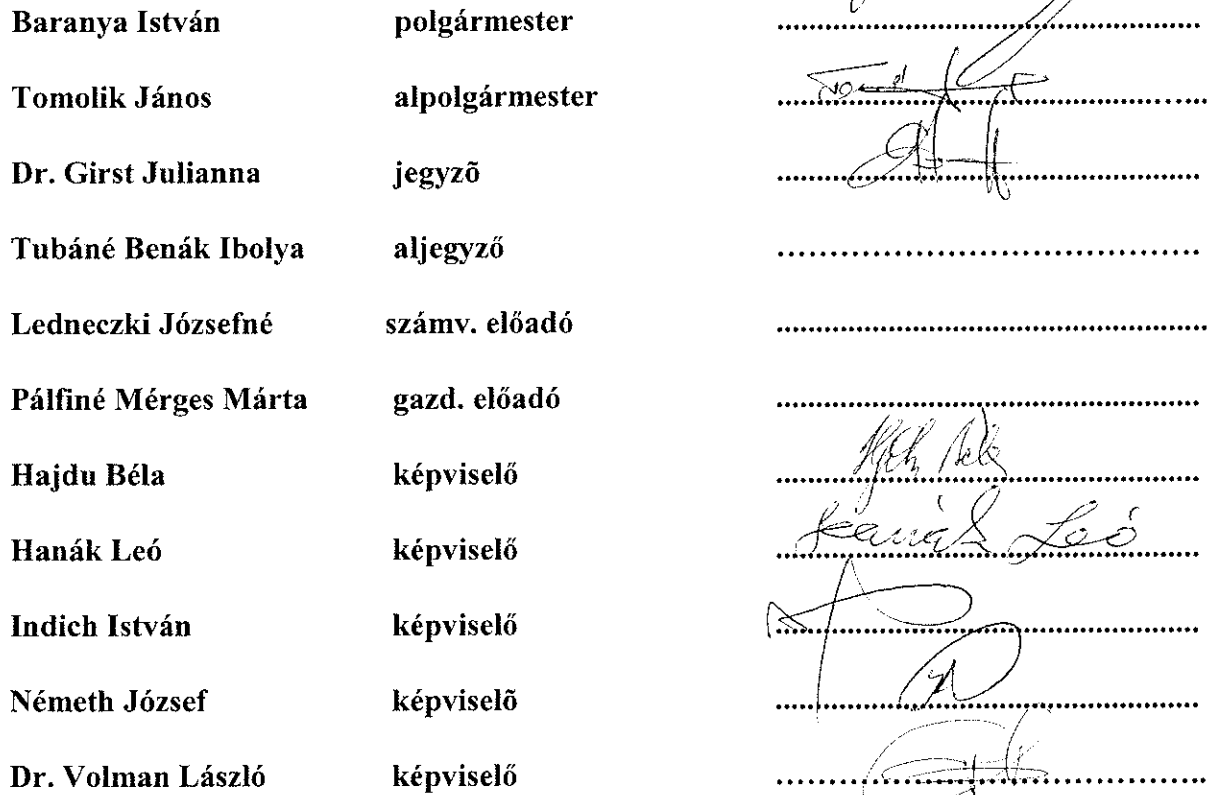 Baranya István polgármester ........................................
Tomolik János alpolgármester ........................................
Dr. Girst Julianna jegyzõ ........................................
Tubáné Benák Ibolya aljegyző ........................................
Ledneczki Józsefné számv. előadó ........................................
Pálfiné Mérges Márta gazd. előadó ........................................
Hajdu Béla képviselő ........................................
Hanák Leó képviselő ........................................ Hanák Leó
Indich István képviselő ........................................
Németh József képviselõ ........................................
Dr. Volman László képviselő ........................................